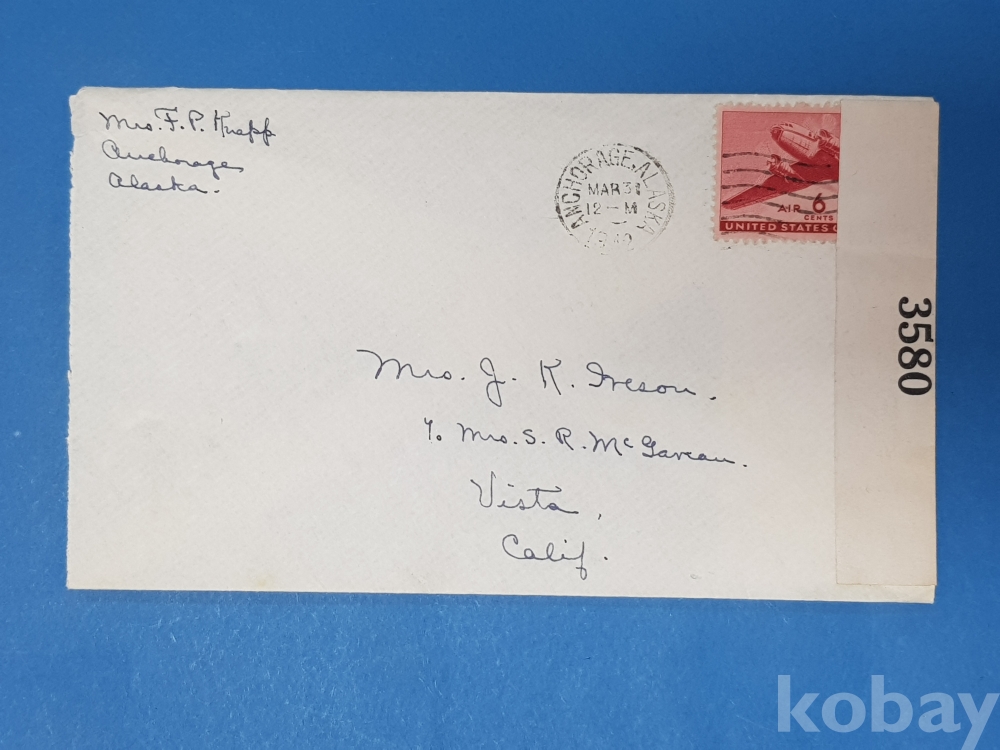 Mrs. F. P. Knapp
Anchorage
Alaska.
ANCHORAGE, ALASKA
MAR 31
12 - M
AIR 6
CENTS
UNITED STATES
3580
Mrs. J. K. Ireson.
c/o Mrs. S. R. McGavran.
Vista,
Calif.
kobay